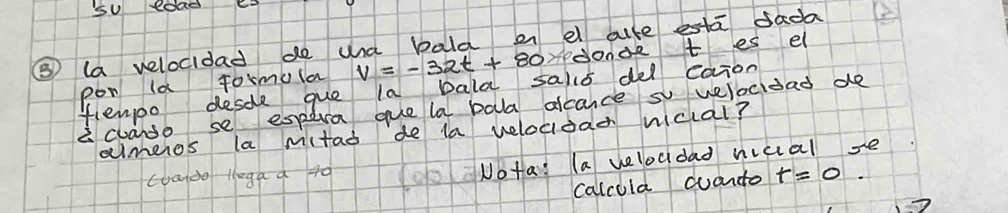 su edad es
③ la velocidad de una bala en el aire está dada
por la formula V = -32t + 80 donde t es el
tiempo desde que la bala salió del cañon
¿cuando se espera que la bala alcance su velocidad de
almenos la mitad de la velocidad nicial?
cuando llega a
Nota: la velocidad nicial se
calcula cuando t = 0.